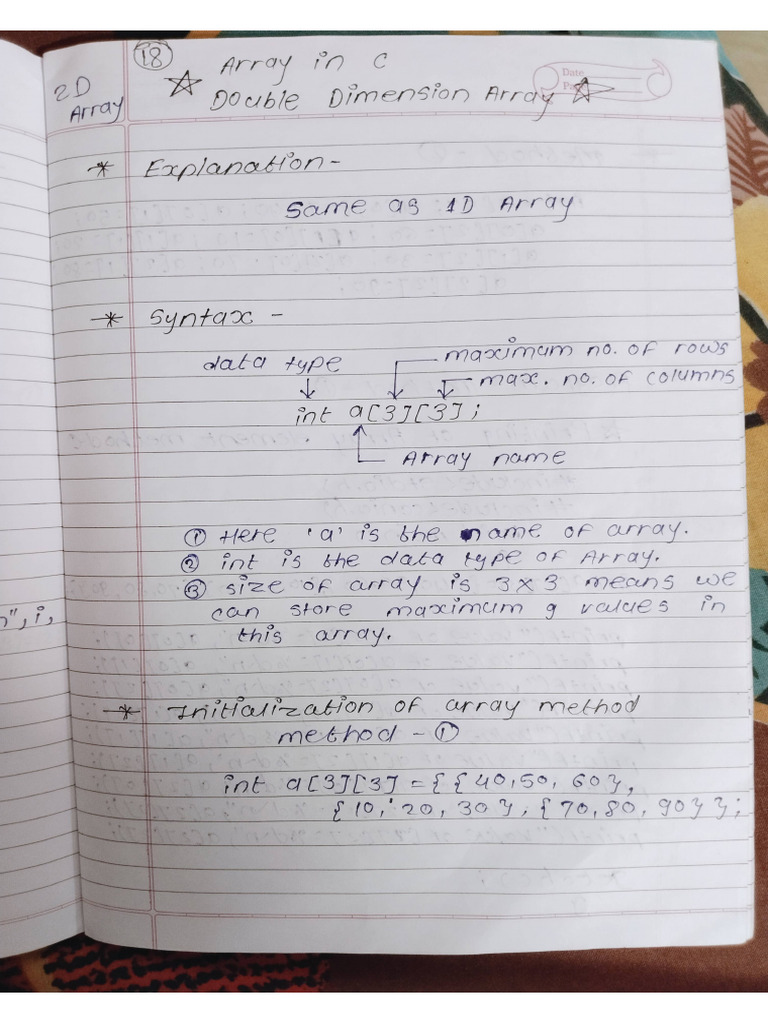 18
2D
Array
Array in C
Double Dimension Array
Date
Pa
* Explanation -
Same as 1D Array
* Syntax -
data type
maximum no. of rows
max. no. of columns
int a[3][3];
Array name
① Here 'a' is the name of array.
② int is the data type of Array.
③ size of array is 3x3 means we
can store maximum 9 values in
this array.
n", i,
* Initialization of array method
method - ①
int a[3][3] = { {40,50, 60},
{10, 20, 30}, {70,80, 90} };